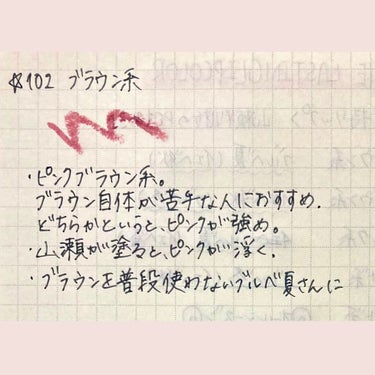 ☆102 ブラウン系
・ピンクブラウン系。
ブラウン自体が苦手な人におすすめ.
どちらかというと、ピンクが強め。
・山瀬が塗ると、ピンクが浮く.
・ブラウンを普段使わないブルベ夏さんに